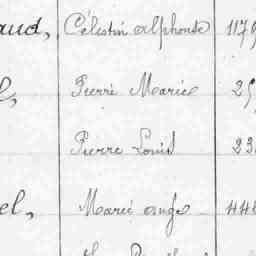 aud, Célestin alphonse 1179
l, Pierre Marie 25
Pierre Louis 23
el, Marie ange 448